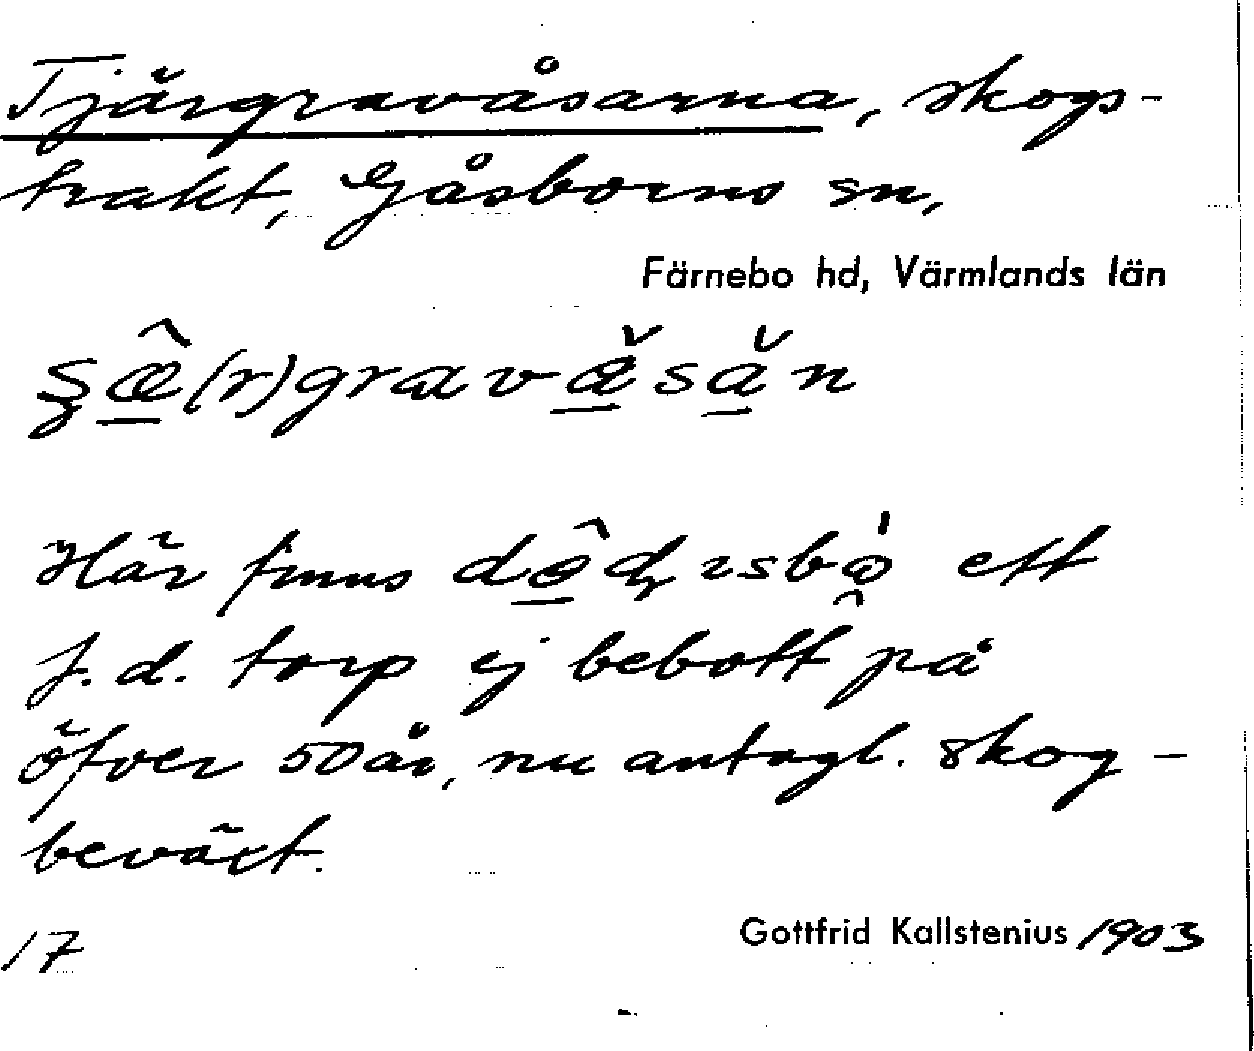 Tjärgravåsarna, skogs-
trakt, Gåsborns sn,
Färnebo hd, Värmlands län
Här finns ett
f.d. torp ej bebott på
öfver 50 år, nu antagl. skog-
beväxt.
17
Gottfrid Kallstenius 1903